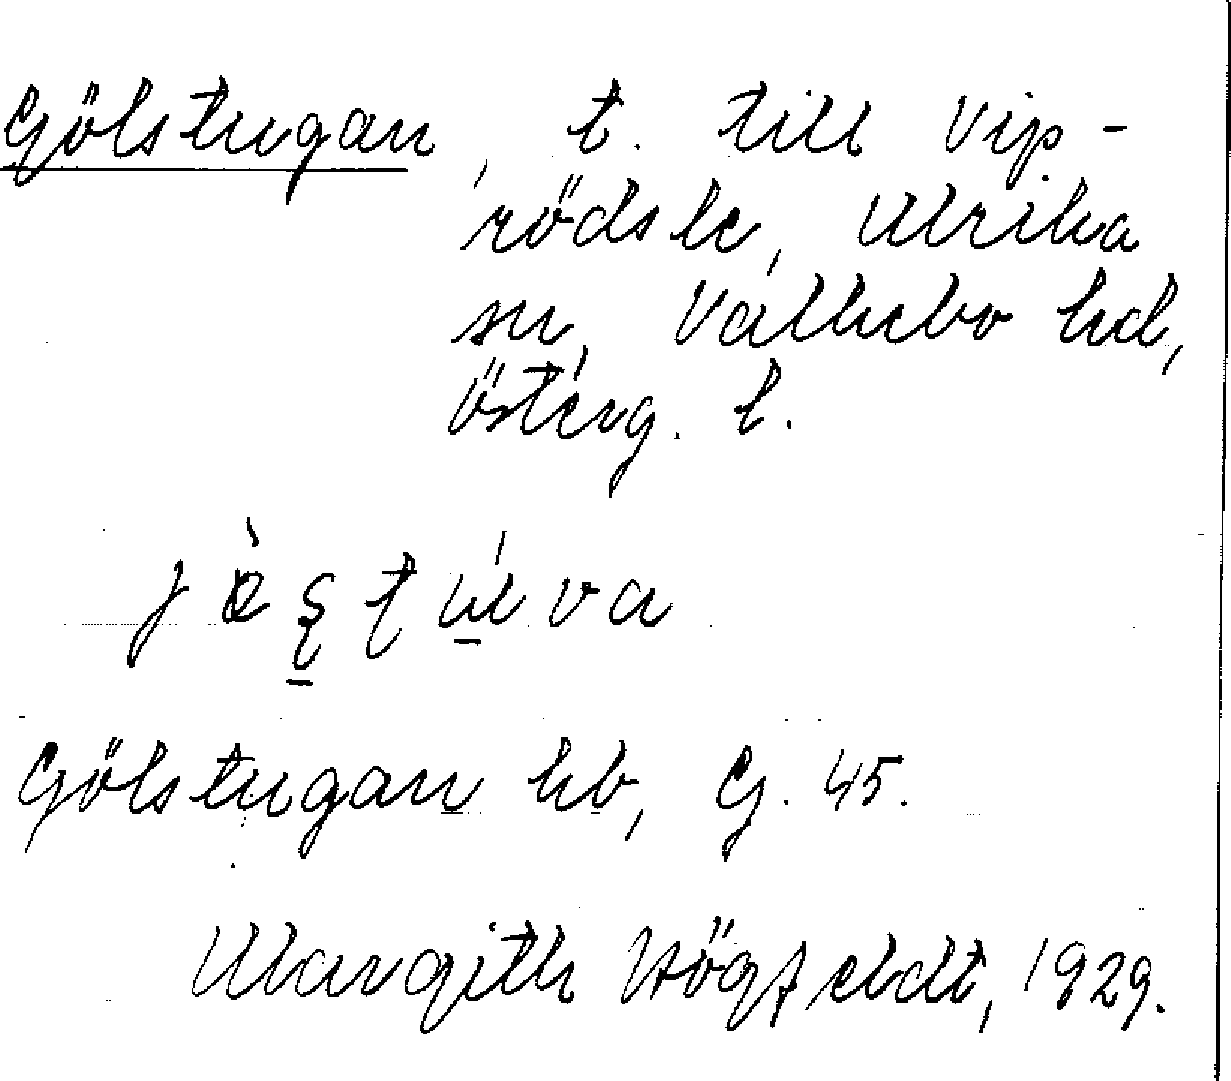 Gölstugan, t. till Vip-
rödsle, Ulrika
sn, Vallkebo hd,
Österg. l.
Gölstugan hb, Gj. 45.
Margith Högfeldt, 1929.